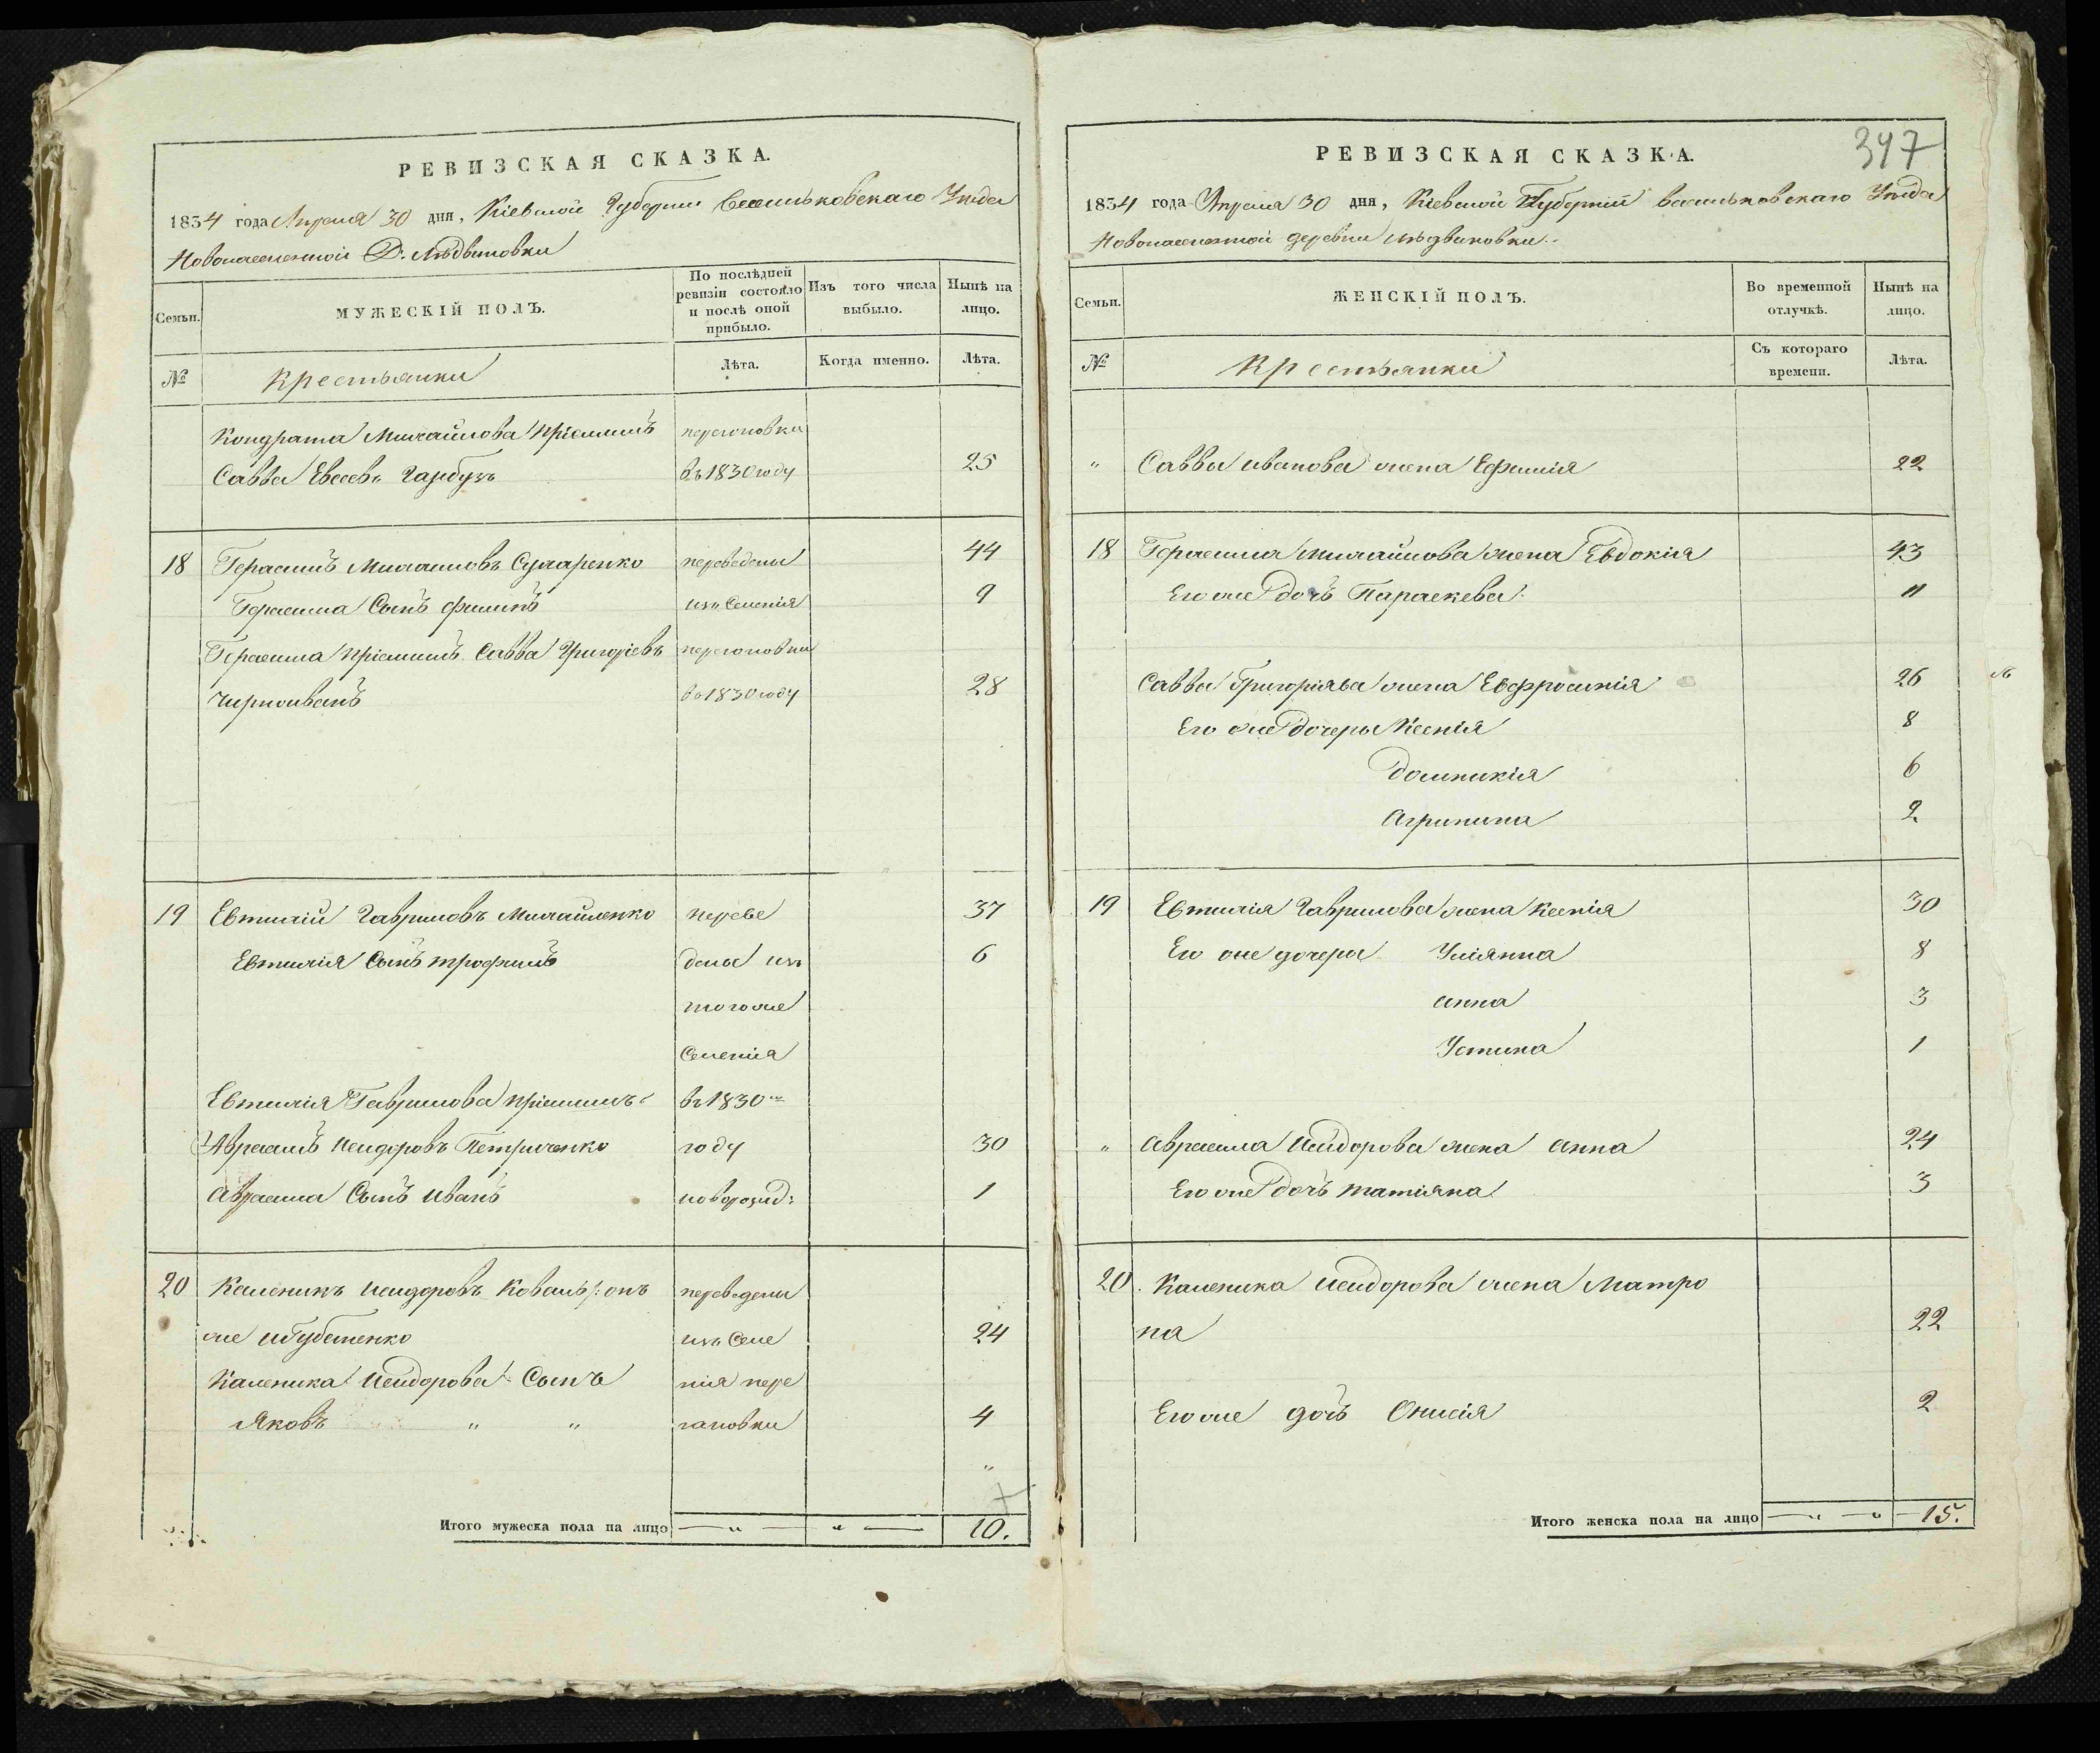 РЕВИЗСКАЯ СКАЗКА.
1834 года Апреля 30 дня, Кіевской Губерніи Васильковскаго Уезда
Новонаселенной Д. Людвиновки
Семьи.
МУЖЕСКІЙ ПОЛЪ.
По послѣдней ревизіи состояло и послѣ оной прибыло.
Изъ того числа выбыло.
Нынѣ на лицо.
№
Крестьянки
Лѣта.
Когда именно.
Лѣта.
Кондрата Михайлова пріемышъ перегоновки
Савва Евсеевъ Гарбузъ въ 1830 году 25
18 Герасимъ Михаиловъ Сухаренко переведены 44
Герасима Сынъ филипъ изъ Селенія 9
Герасима пріемышъ Савва Григоріевъ перегоновки
Чирноиванъ во 1830 году 28
19 Евтихій Гавриловъ Михайленко переве 37
Евтихія Сынъ трофимъ дены изъ 6
тогоже
Селенія
Евтихія Гаврилова пріемышъ въ 1830 мъ
Авраамъ Исидоровъ Петриченко году 30
Авраама Сынъ иванъ новорожд: 1
20 Каленикъ Исидоровъ Коваль /: онъ переведены
же и Губетенко изъ Селе 24
Каленика Исидорова Сынъ нія пере
Яковъ " " гановки 4
"
Итого мужеска пола на лицо — " — " — 10.
347
РЕВИЗСКАЯ СКАЗКА.
1834 года Апреля 30 дня, Кіевской Губерніи васильковскаго Уезда
Новонаселенной деревни людвиновки.
Семьи.
ЖЕНСКІЙ ПОЛЪ.
Во временной отлучкѣ.
Нынѣ на лицо.
№
Крестьянки
Съ котораго времени.
Лѣта.
" Савва иванова жена Ефимія 22
18 Герасима Михайлова жена Евдокія 43
Его же дочь Параскева: 11
Савва Григоріява жена Евфросинія 26
Его же дочеры Ксенія 8
домникія 6
Агрипина 2
19 Евтихія Гаврилова жена Ксенія 30
Его же дочеры Уліянна 8
анна 3
Устина 1
" Авраама Исидорова жена анна 24
Его же дочь татіяна 3
20. Каленика Исидорова жена Матро
на 22
Его же дочь Онисія 2
Итого женска пола на лицо — " — " — 15.